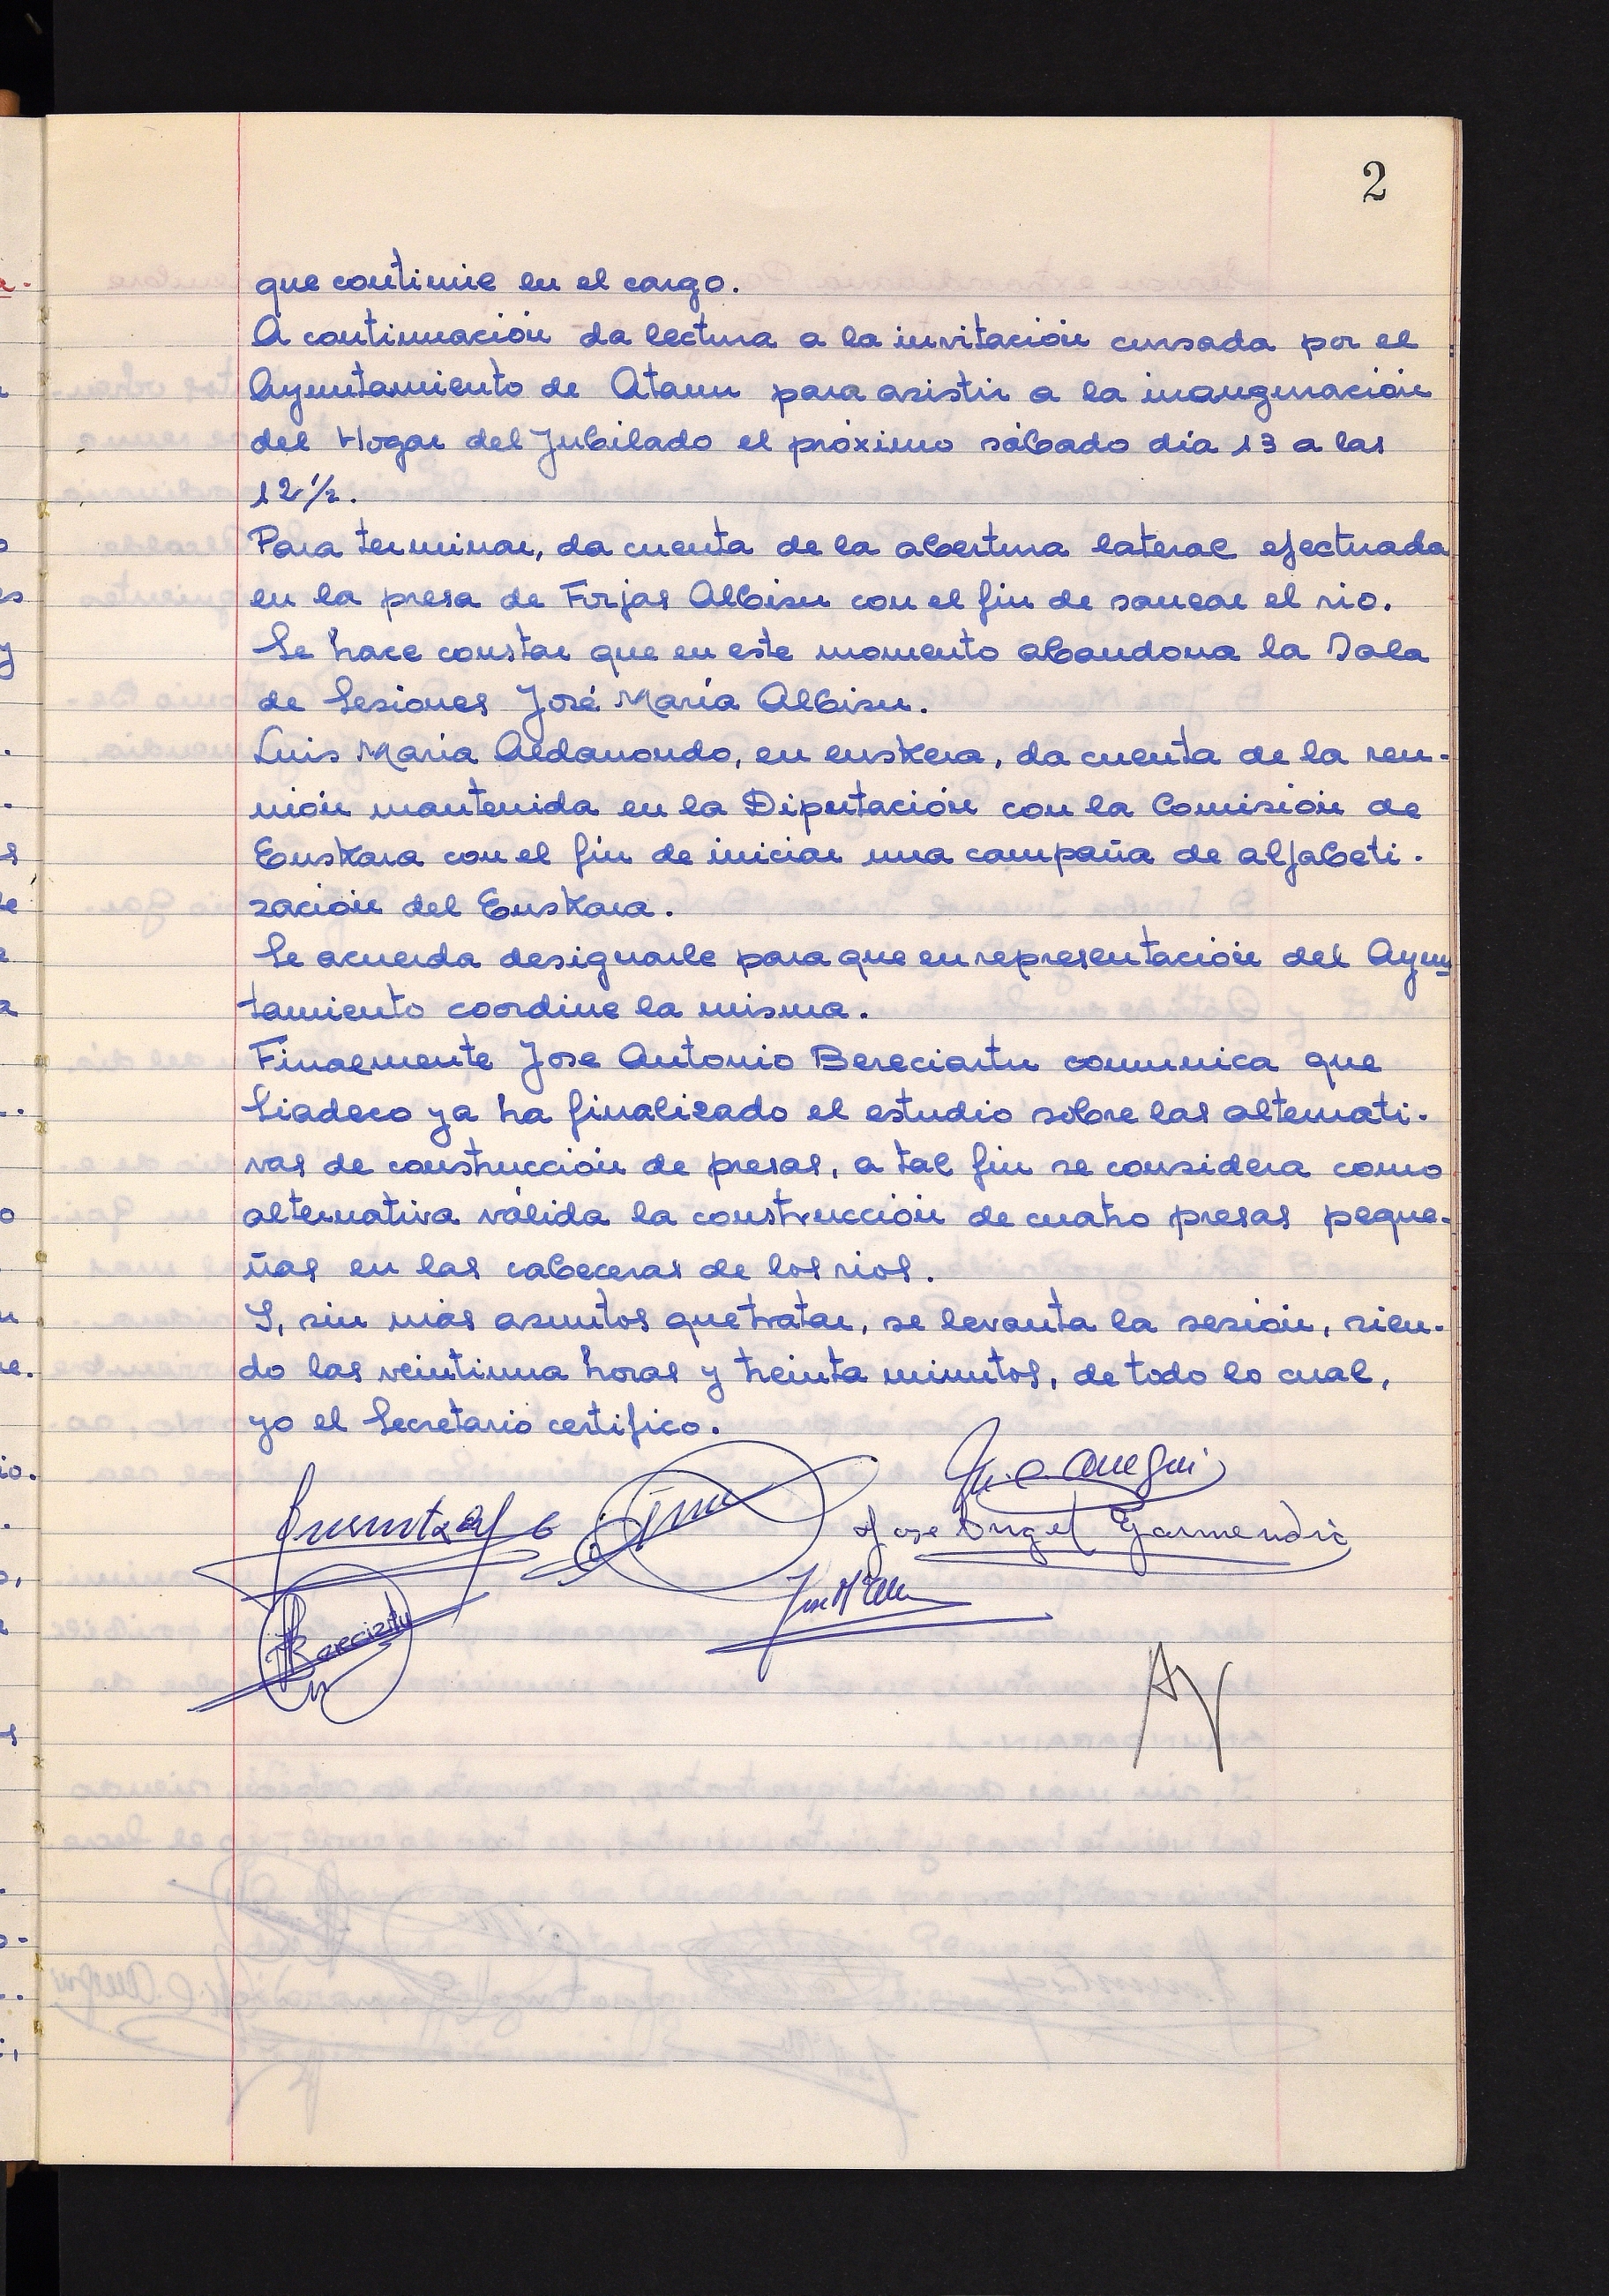 2
que continúe en el cargo.
A continuación da lectura a la invitación cursada por el
Ayuntamiento de Ataun para asistir a la inauguración
del Hogar del Jubilado el próximo sábado día 13 a las
12 1/2.
Para terminar, da cuenta de la abertura lateral efectuada
en la presa de Forjas Albisu con el fin de sanear el rio.
Se hace constar que en este momento abandona la Sala
de Sesiones José María Albisu.
Luis María Aldanondo, en euskera, da cuenta de la reu-
nión mantenida en la Diputación con la Comisión de
Euskara con el fin de iniciar una campaña de alfabeti-
zación del Euskara.
Se acuerda designarle para que en representación del Ayun
tamiento coordine la misma.
Finalmente Jose Antonio Bereciartu comunica que
Siadeco ya ha finalizado el estudio sobre las alternati-
vas de construcción de presas, a tal fin se considera como
alternativa válida la construcción de cuatro presas peque-
ñas en las cabeceras de los rios.
Y, sin más asuntos que tratar, se levanta la sesión, sien-
do las veintiuna horas y treinta minutos, de todo lo cual,
yo el Secretario certifico.
Jose Angel Garmendia
Bereciartu